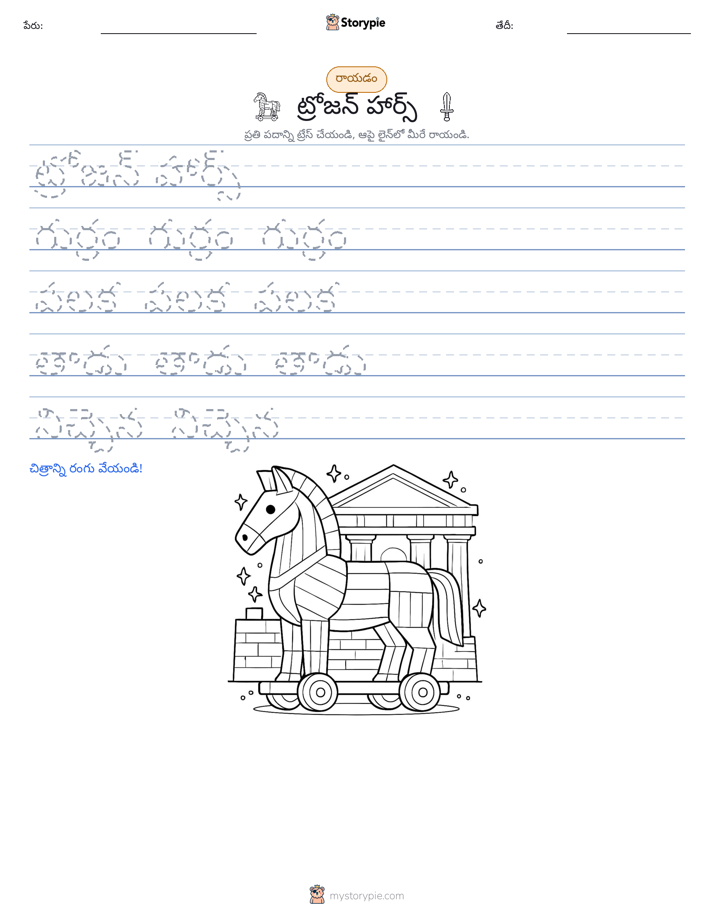 పేరు:
Storypie
తేదీ:
రాయడం
ట్రోజన్ హార్స్
ప్రతి పదాన్ని ట్రేస్ చేయండి, ఆపై లైన్‌లో మీరే రాయండి.
ట్రోజన్ హార్స్
గుర్రం గుర్రం గుర్రం
పలక పలక పలక
జోడు జోడు జోడు
నిచ్చెన నిచ్చెన
చిత్రాన్ని రంగు వేయండి!
mystorypie.com